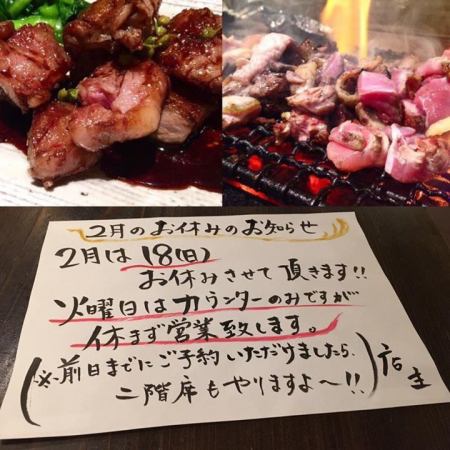 2月のお休みのお知らせ
2月は18(日)
お休みさせて頂きます!!
火曜日はカウンターのみですが
休まず営業致します。
(※前日までにご予約いただけましたら、
二階席もやりますよ～!!)店主